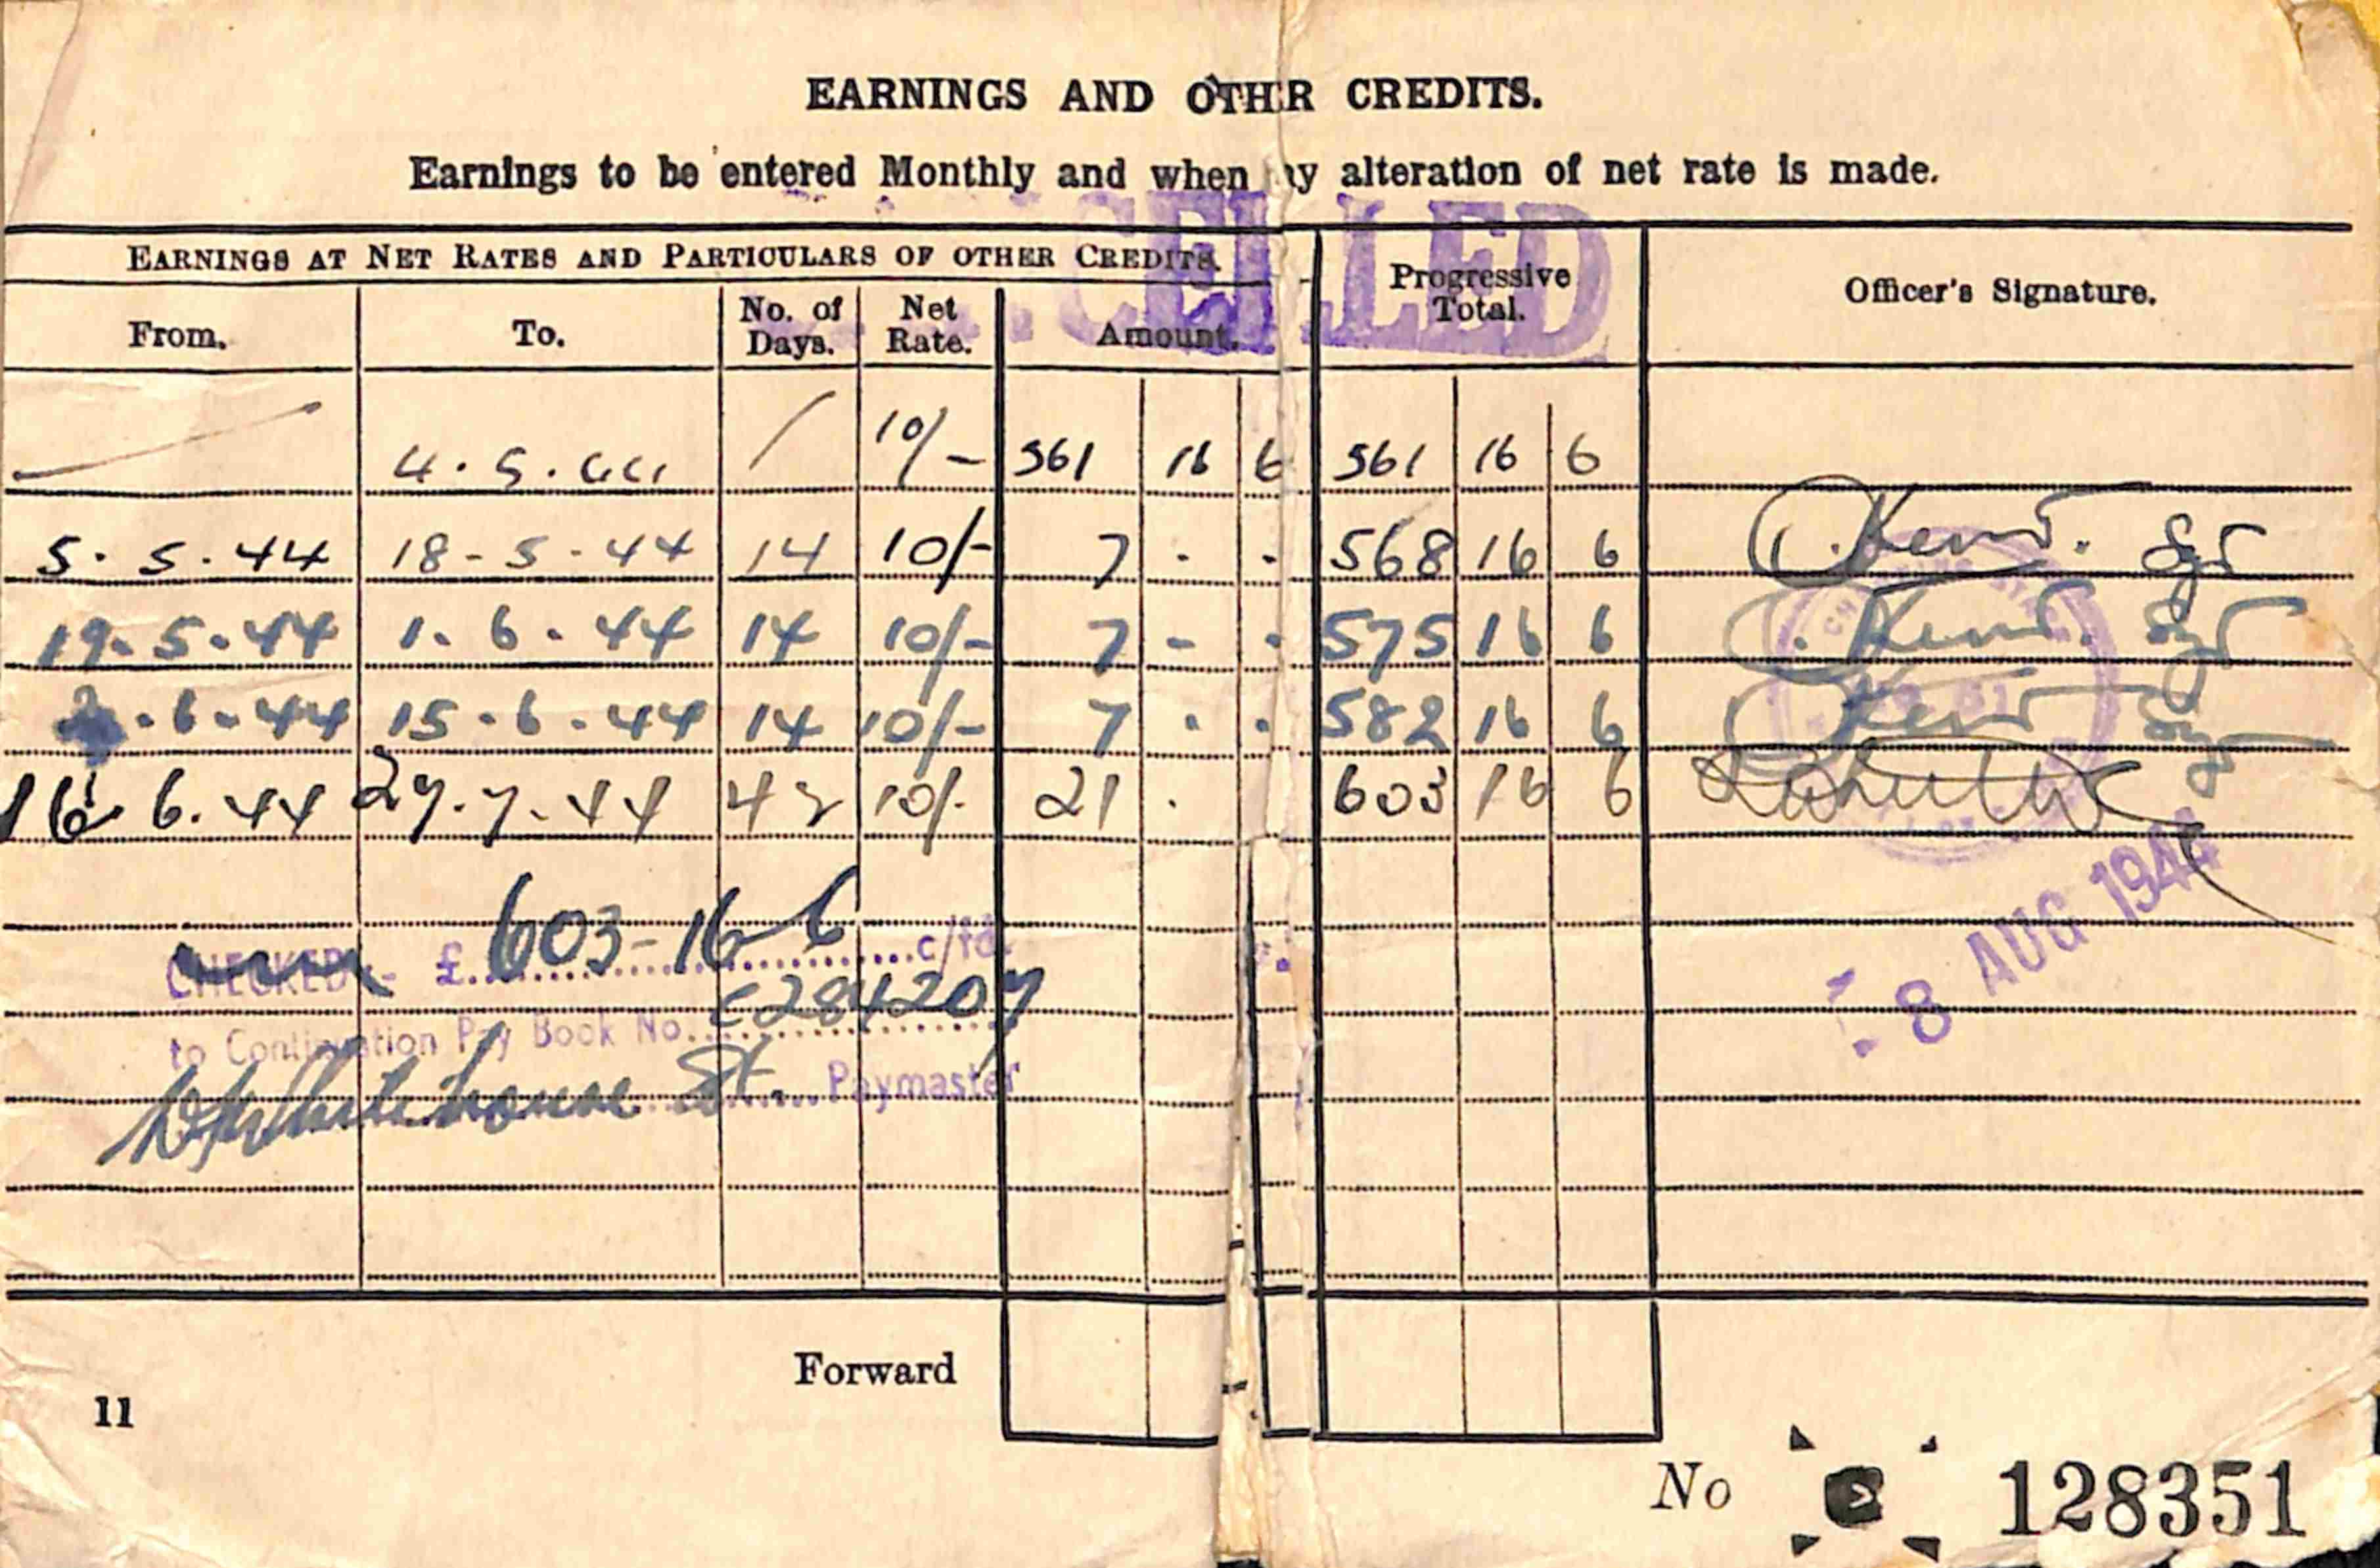 EARNINGS AND OTHER CREDITS.
Earnings to be entered Monthly and when ny alteration of net rate is made.
CELLED
EARNINGS AT NET RATES AND PARTICULARS OF OTHER CREDITS.
From. To. No. of Days. Net Rate. Amount. Progressive Total. Officer's Signature.
4.5.44 10/- 561 16 6 561 16 6
5.5.44 18-5-44 14 10/- 7 . . 568 16 6 Kent. Sgt
19.5.44 1.6.44 14 10/- 7 - . 575 16 6 Kent. Sgt
2.6.44 15.6.44 14 10/- 7 . . 582 16 6 Kent Sgt
16.6.44 27.7.44 42 10/- 21 . 603 16 6
CHECKED - £ 603-16-6 c/fd.
to Continuation Pay Book No. C284207
Whitehouse Lt. Paymaster
8 AUG 1944
Forward
11
No 128351